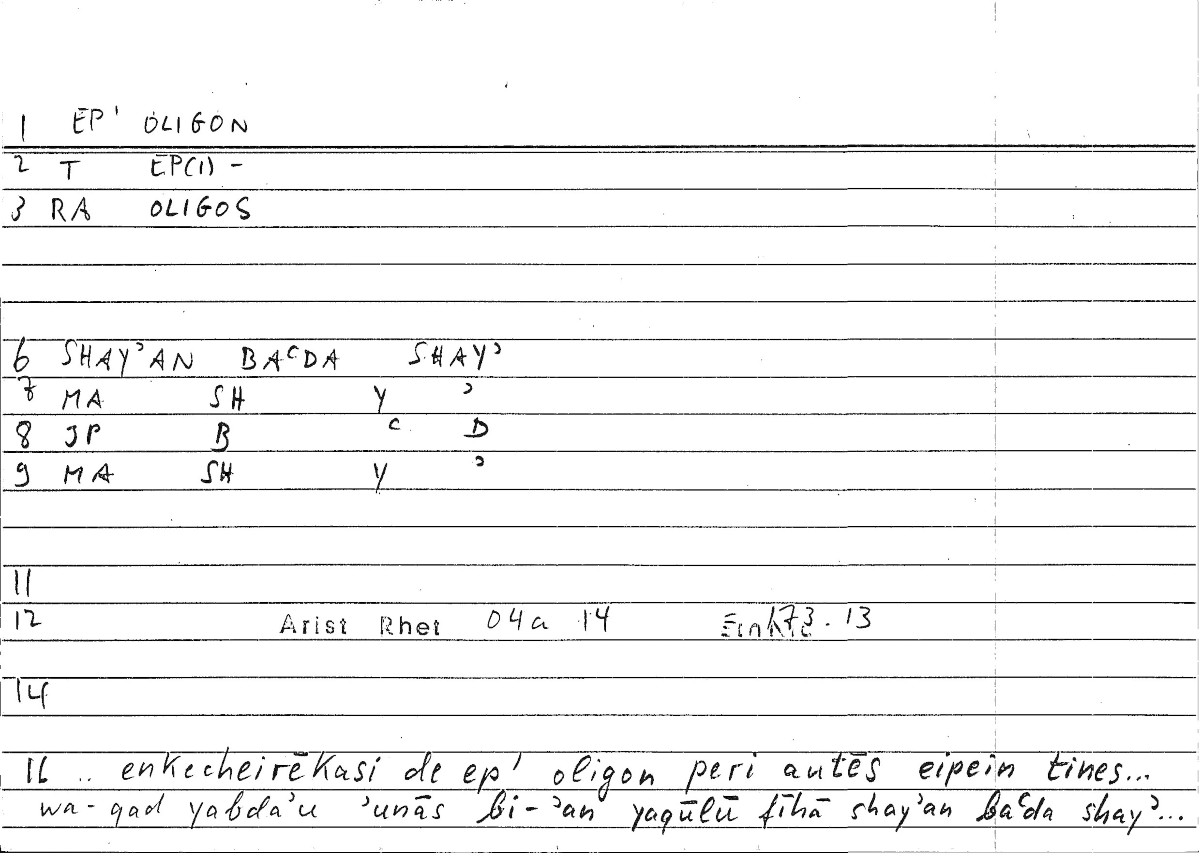 1 EP' OLIGON
2 T EP(I) -
3 RA OLIGOS
6 SHAYʾAN BAʿDA SHAYʾ
7 MA SH Y ʾ
8 JP B ʿ D
9 MA SH Y ʾ
11
12 Arist Rhet 04a 14 173.13
14
16 .. enkecheirēkasi de ep' oligon peri autēs eipein tines...
wa-qad yabdaʾu ʾunās bi-ʾan yaqūlū fīhā shayʾan baʿda shayʾ...